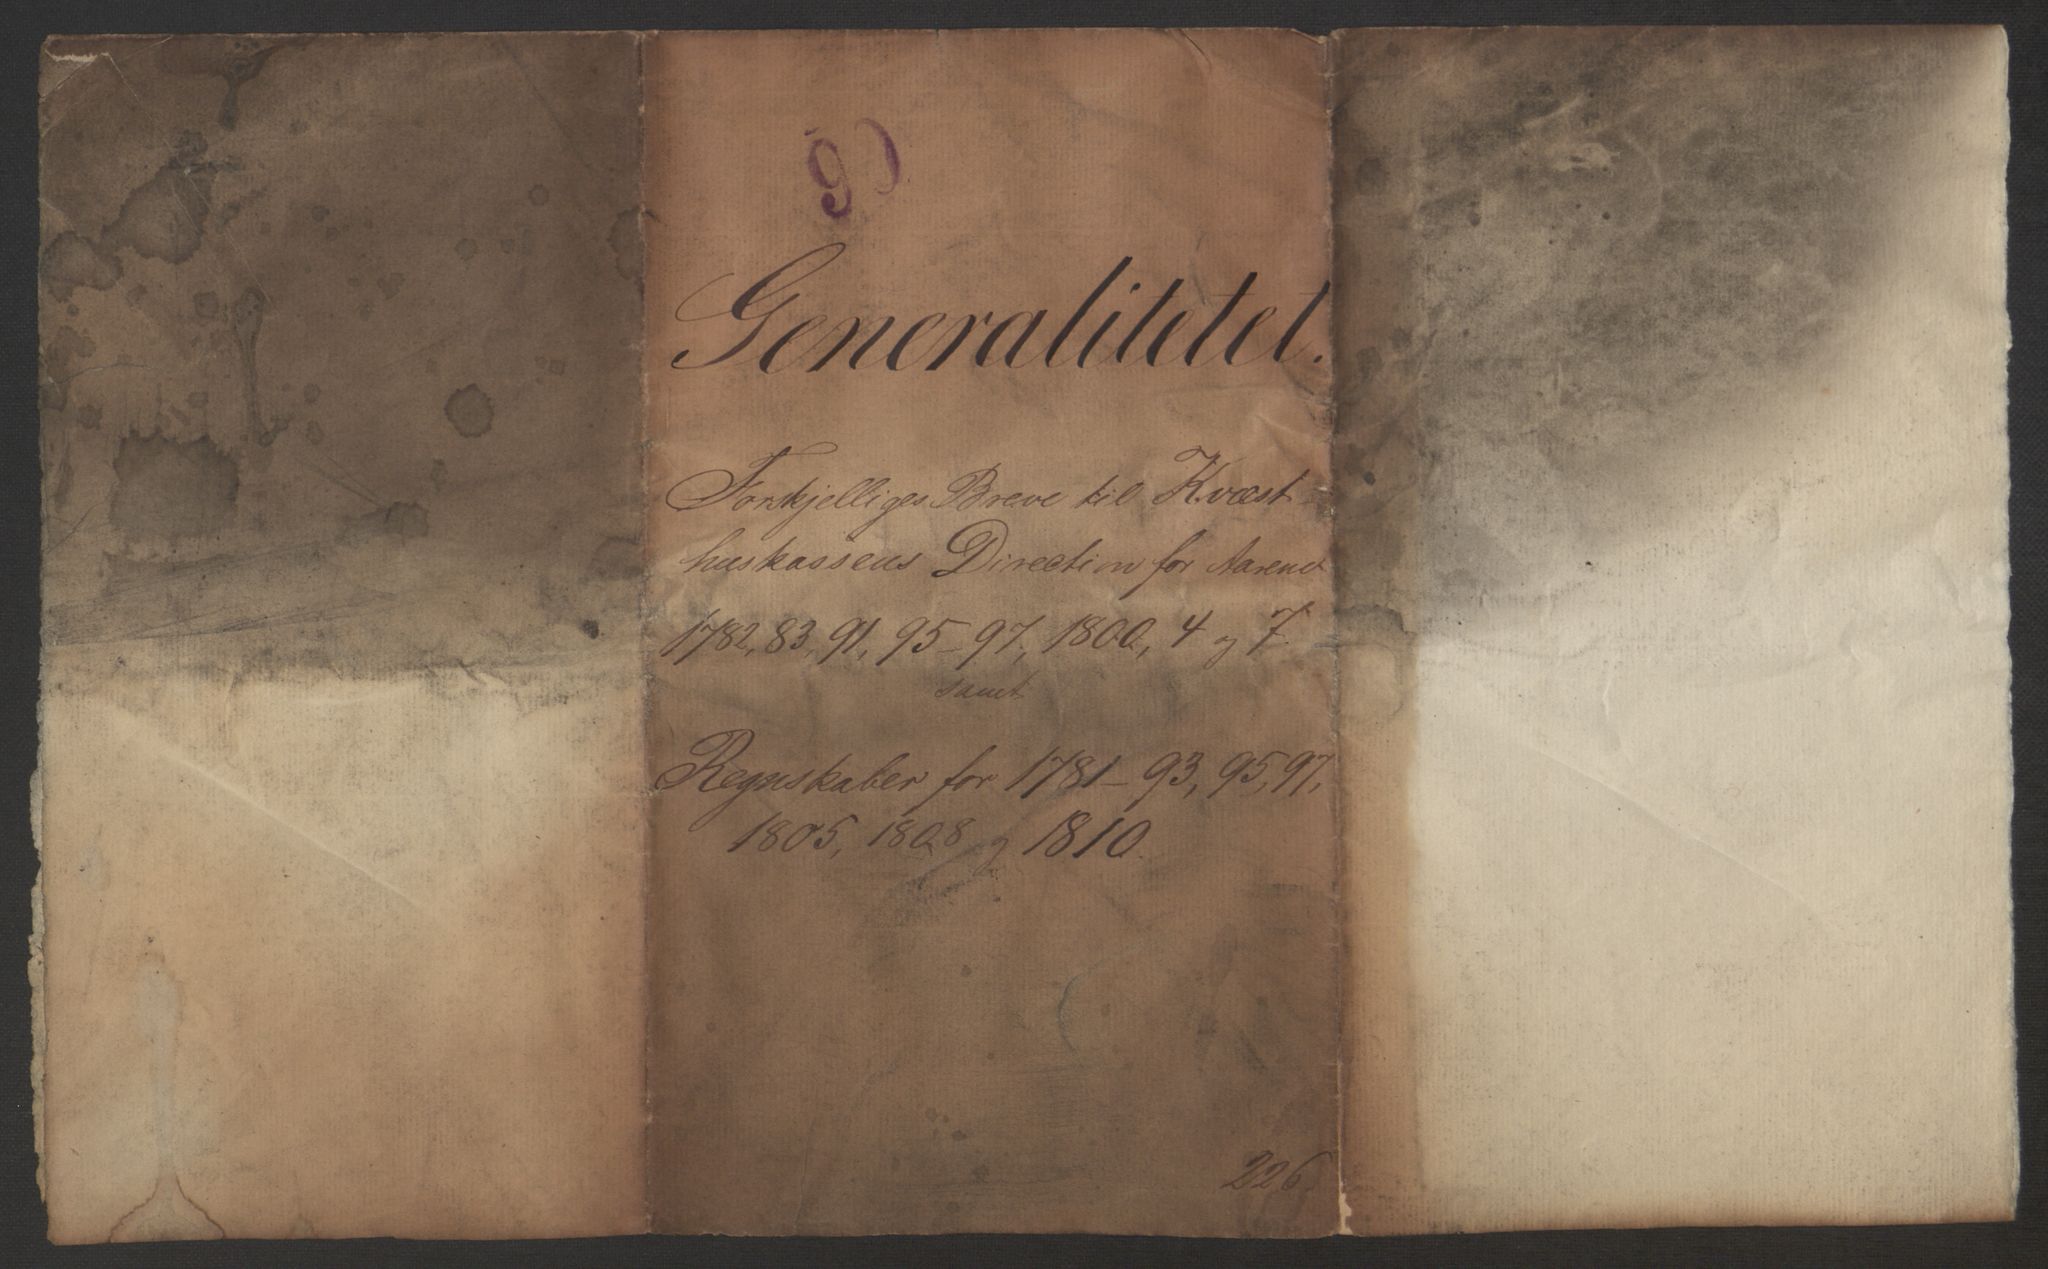 90
Generalitetet.
Forskjelliges Breve til Kvæst-
huskassens Direction for Aarene
1782, 83, 91, 95-97, 1800, 4 og 7
samt
Regnskaber for 1781-93, 95, 97,
1805, 1808 og 1810.
226